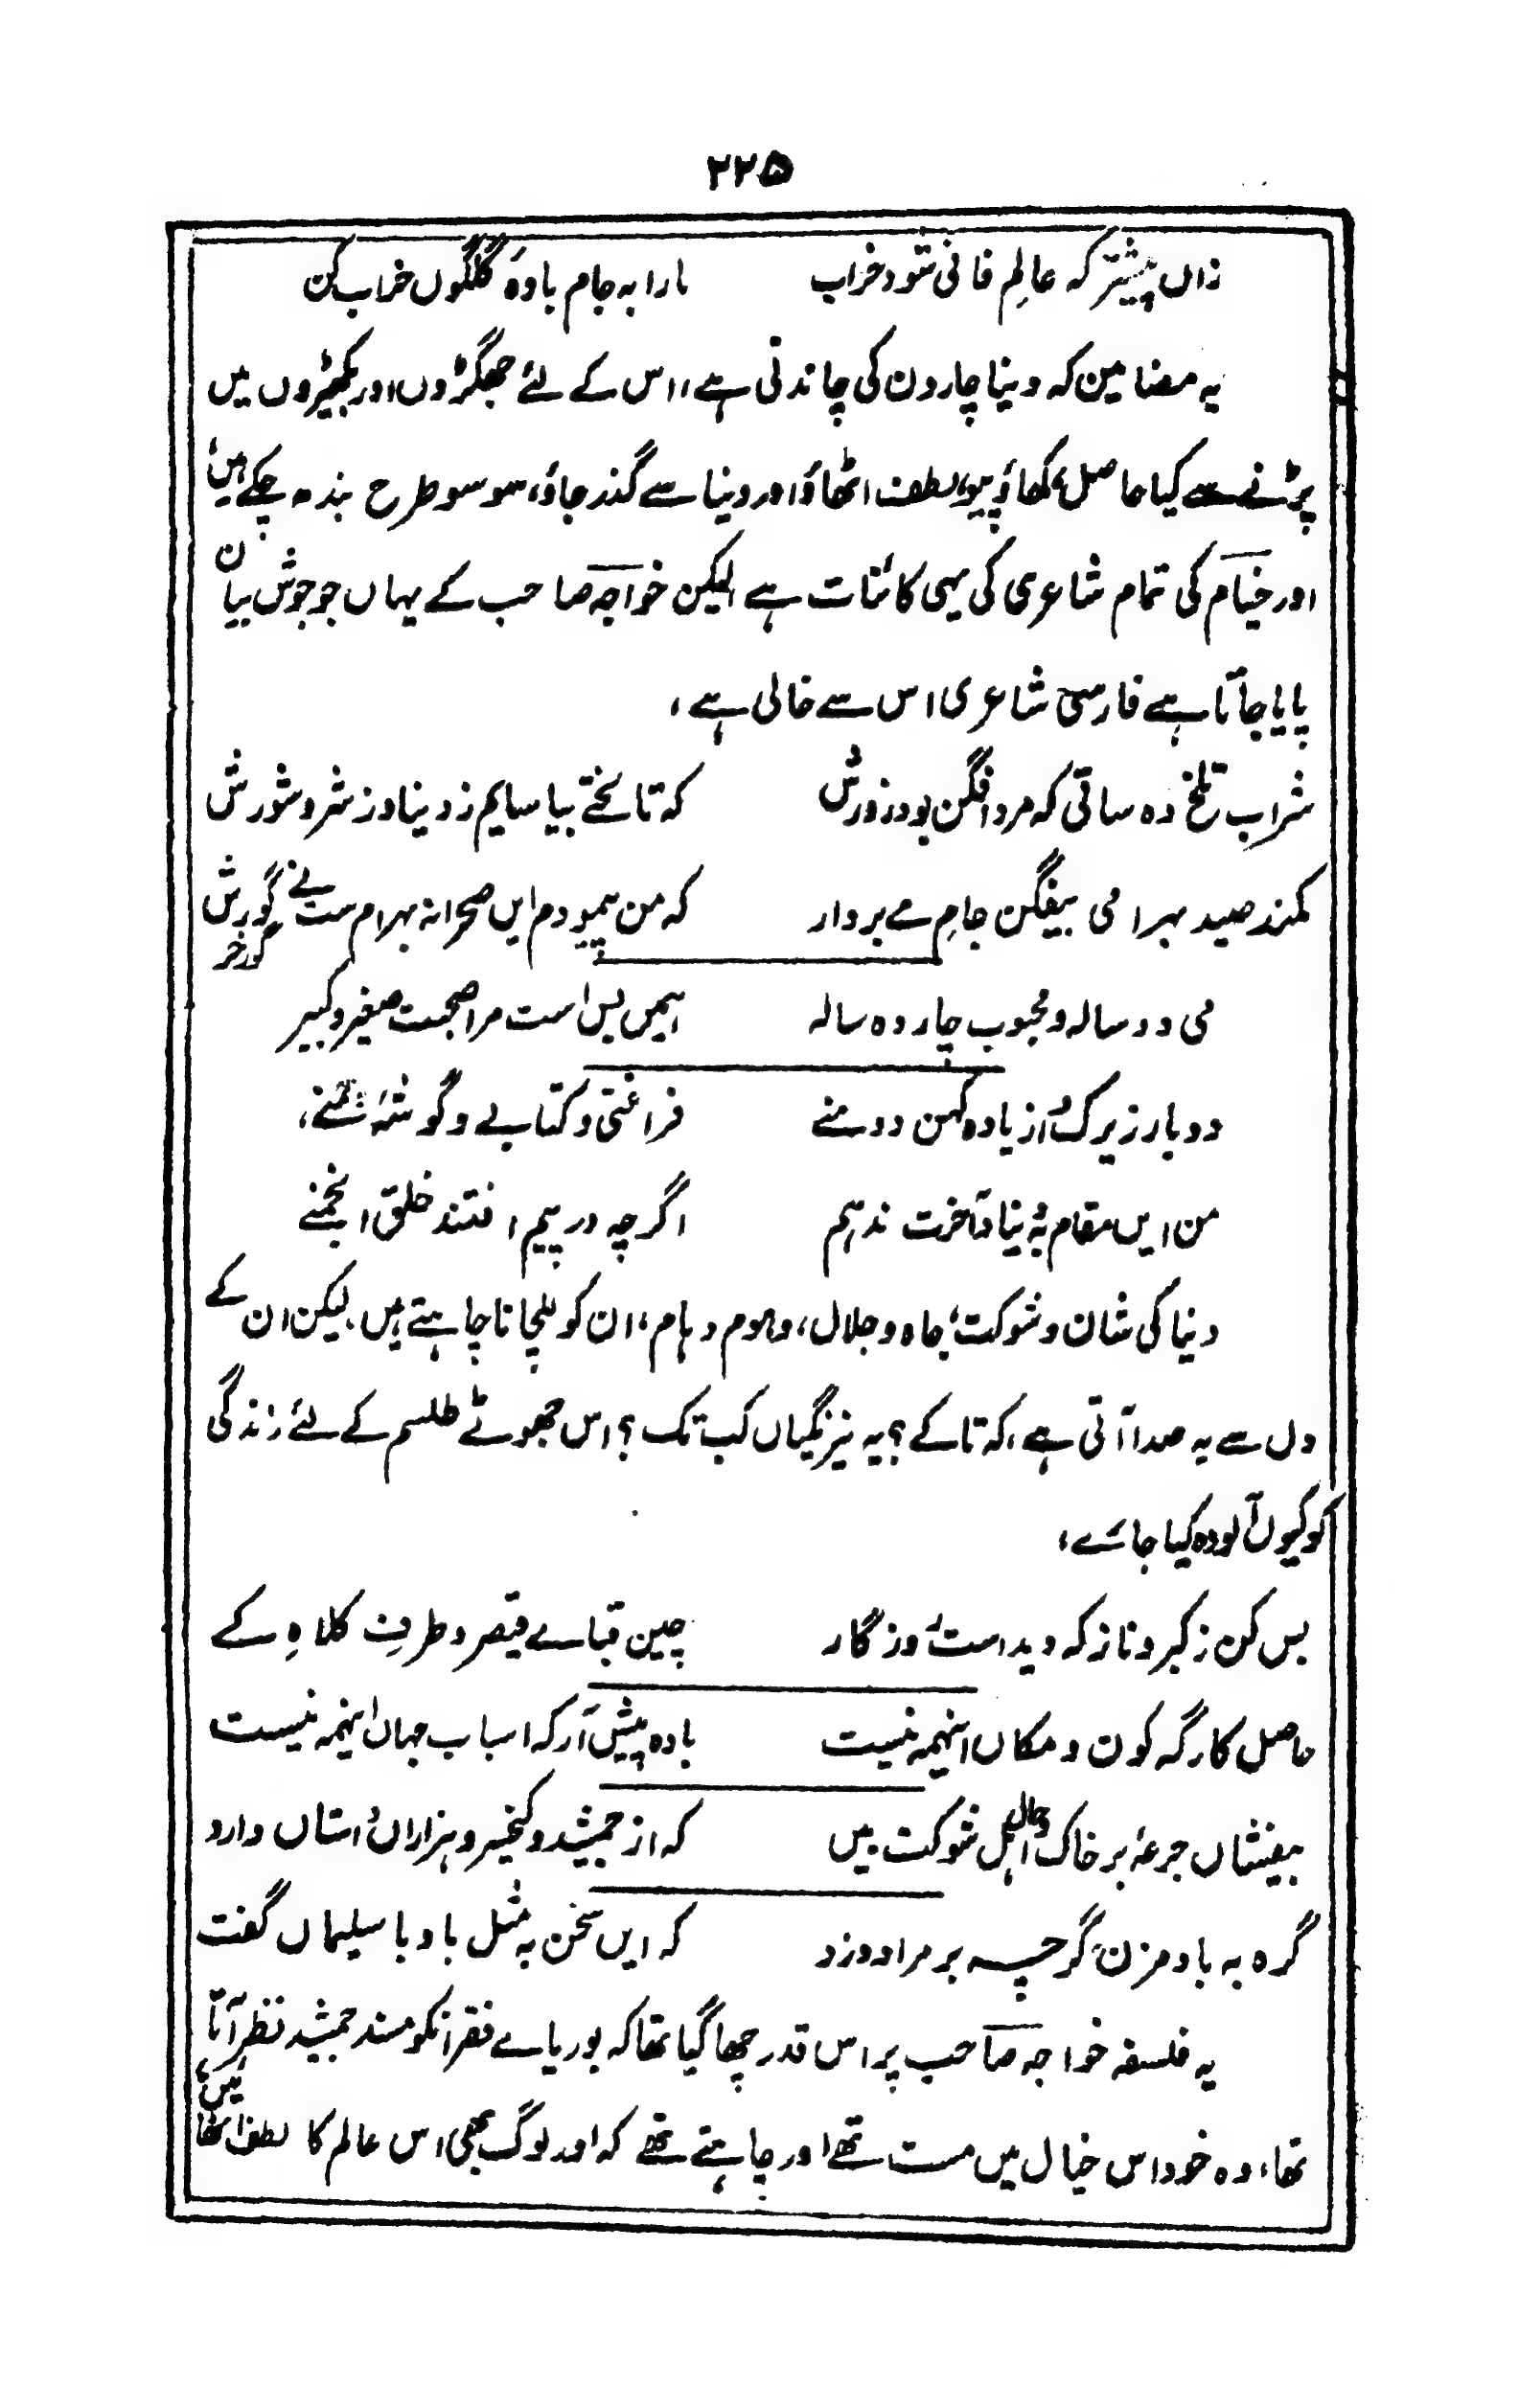 ۲۲۵
زاں پیشتر کہ عالمِ فانی شود خراب ما را بہ جام بادۂ گلگوں خراب کن
یہ مضامین کہ دنیا چار دن کی چاندنی ہے، اس کے لئے جھگڑوں اور بکھیڑوں میں
پڑنے سے کیا حاصل؟ کھاؤ پیو، لطف اٹھاؤ اور دنیا سے گذر جاؤ، سو سو طرح بندھ چکے ہیں،
اور خیام کی تمام شاعری کی یہی کائنات ہے لیکن خواجہ صاحب کے یہاں جو جوش بیان
پایا جاتا ہے فارسی شاعری اس سے خالی ہے،
شراب تلخ دہ ساقی کہ مرد افگن بود زورش کہ تا لختے بیاسایم ز دنیا و ز شر و شورش
کمند صید بہرامی بیفگن جامِ مے بردار کہ من پیمودم ایں صحرا نہ بہرام ست نے گورش
گورخر
می دو سالہ و محبوب چاردہ سالہ ہمیں بس است مرا صحبت صغیر و کبیر
دو یار زیرک و از بادہ کہن دو منے فراغتی و کتابے و گوشۂ چمنے،
من ایں مقام بہ دنیا و آخرت ندہم اگرچہ در پیم افتند خلق انجمنے
دنیا کی شان و شوکت، جاہ و جلال، دھوم دہام، ان کو للچانا چاہتے ہیں، لیکن ان کے
دل سے یہ صدا آتی ہے، کہ تا کے؟ یہ نیرنگیاں کب تک؟ اس جھوٹے طلسم کے لئے زندگی
کو کیوں آلودہ کیا جائے،
بس کن ز کبر و ناز کہ دید است روزگار چین قبائے قیصر و طرفِ کلاہِ کے
حاصل کارگہ کون و مکاں اینہمہ نیست بادہ پیش آر کہ اسباب جہاں اینہمہ نیست
بیفشاں جرعۂ بر خاک و حال اہل شوکت بیں کہ از جمشید و کیخسرو ہزاراں داستاں دارد
گرہ بہ باد مزن گرچہ بر مراد وزد کہ ایں سخن بہ مثل باد با سلیماں گفت
یہ فلسفہ خواجہ صاحب پر اس قدر چھا گیا تھا کہ بوریائے فقر انکو مسند جمشید نظر آتا
تھا، وہ خود اس خیال میں مست تھے اور چاہتے تھے کہ اور لوگ بھی اس عالم کا لطف اٹھائیں،